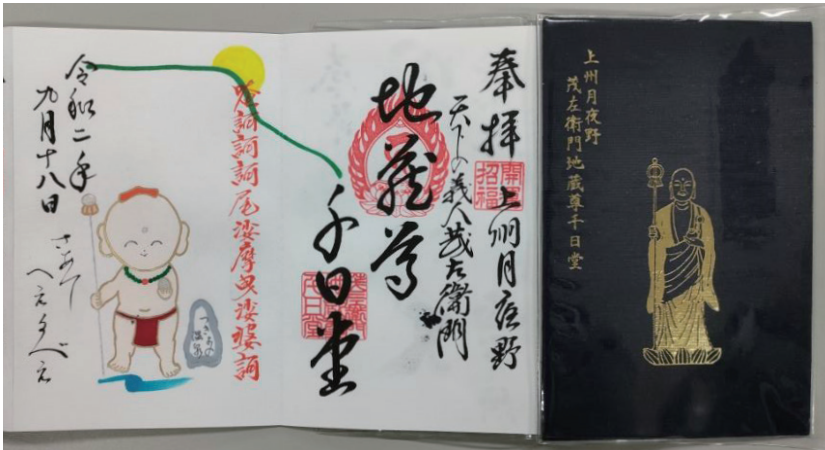 上州月夜野
茂左衛門地蔵尊千日堂
奉拝 上州月夜野
開運
招福
天下の義人茂左衛門
地蔵尊
千日堂
訶訶訶尾娑摩曳娑訶
つきよの
温泉
令和二年
九月十八日
さあて